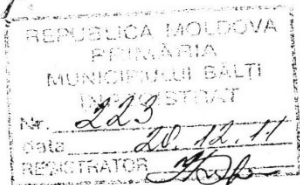 REPUBLICA MOLDOVA
PRIMĂRIA
MUNICIPIULUI BĂLȚI
ÎNREGISTRAT
Nr. 223
data 20.12.11
REGISTRATOR